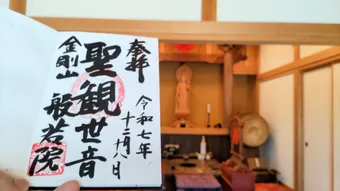 奉拝
令和七年
十二月八日
聖観世音
金剛山
般若院